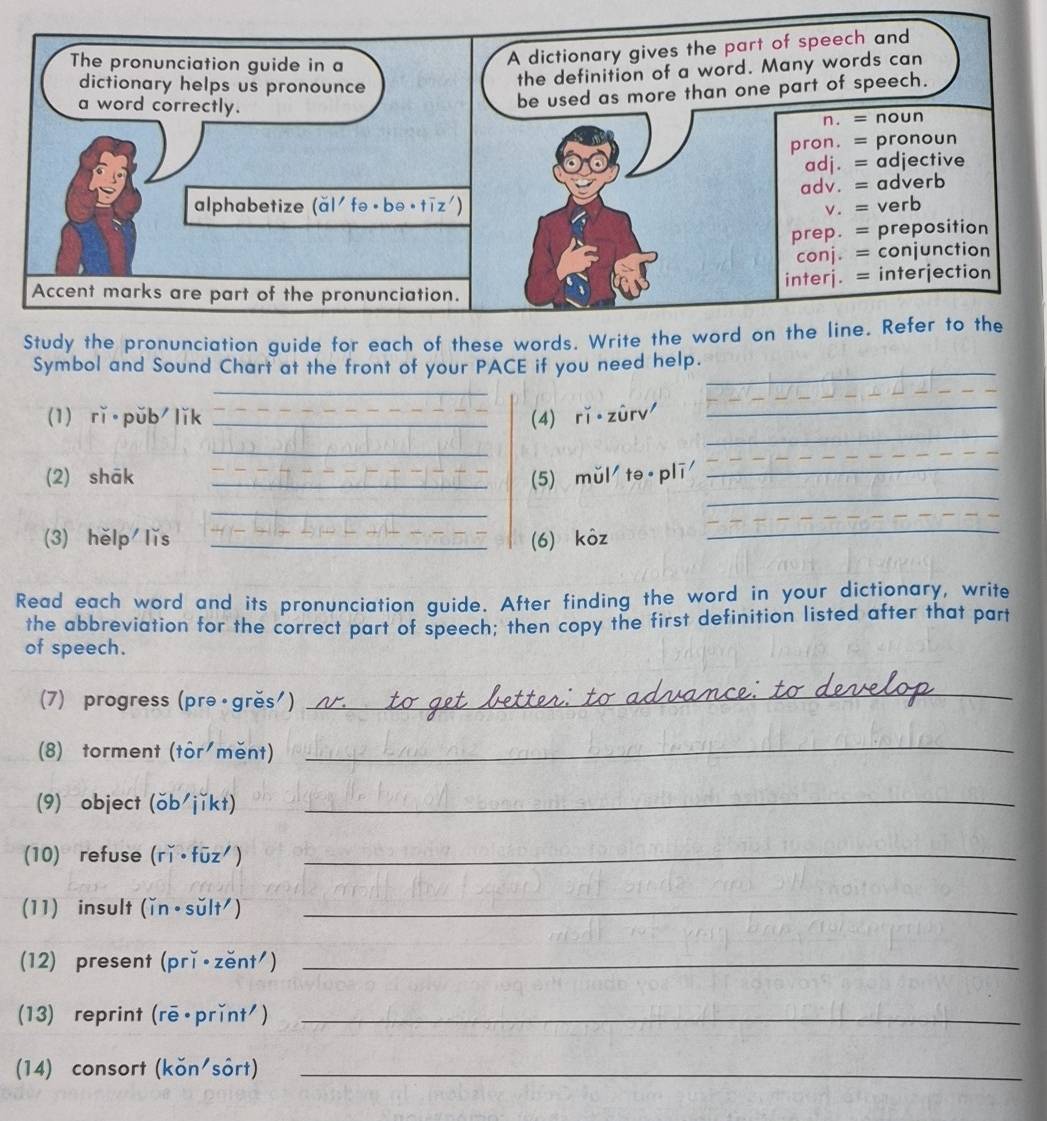 The pronunciation guide in a
dictionary helps us pronounce
a word correctly.
alphabetize (ăl′ fə • bə • tīz′)
Accent marks are part of the pronunciation.
A dictionary gives the part of speech and
the definition of a word. Many words can
be used as more than one part of speech.
n. = noun
pron. = pronoun
adj. = adjective
adv. = adverb
v. = verb
prep. = preposition
conj. = conjunction
interj. = interjection
Study the pronunciation guide for each of these words. Write the word on the line. Refer to the
Symbol and Sound Chart at the front of your PACE if you need help.
(1) rĭ • pŭb′ lĭk
(2) shāk
(3) hĕlp′ lĭs
(4) rĭ • zûrv′
(5) mŭl′ tə • plī′
(6) kôz
Read each word and its pronunciation guide. After finding the word in your dictionary, write
the abbreviation for the correct part of speech; then copy the first definition listed after that part
of speech.
(7) progress (prə • grĕs′) v. to get better; to advance; to develop
(8) torment (tôr′ mĕnt)
(9) object (ŏb′ jĭkt)
(10) refuse (rĭ • fūz′)
(11) insult (ĭn • sŭlt′)
(12) present (prĭ • zĕnt′)
(13) reprint (rē • prĭnt′)
(14) consort (kŏn′ sôrt)